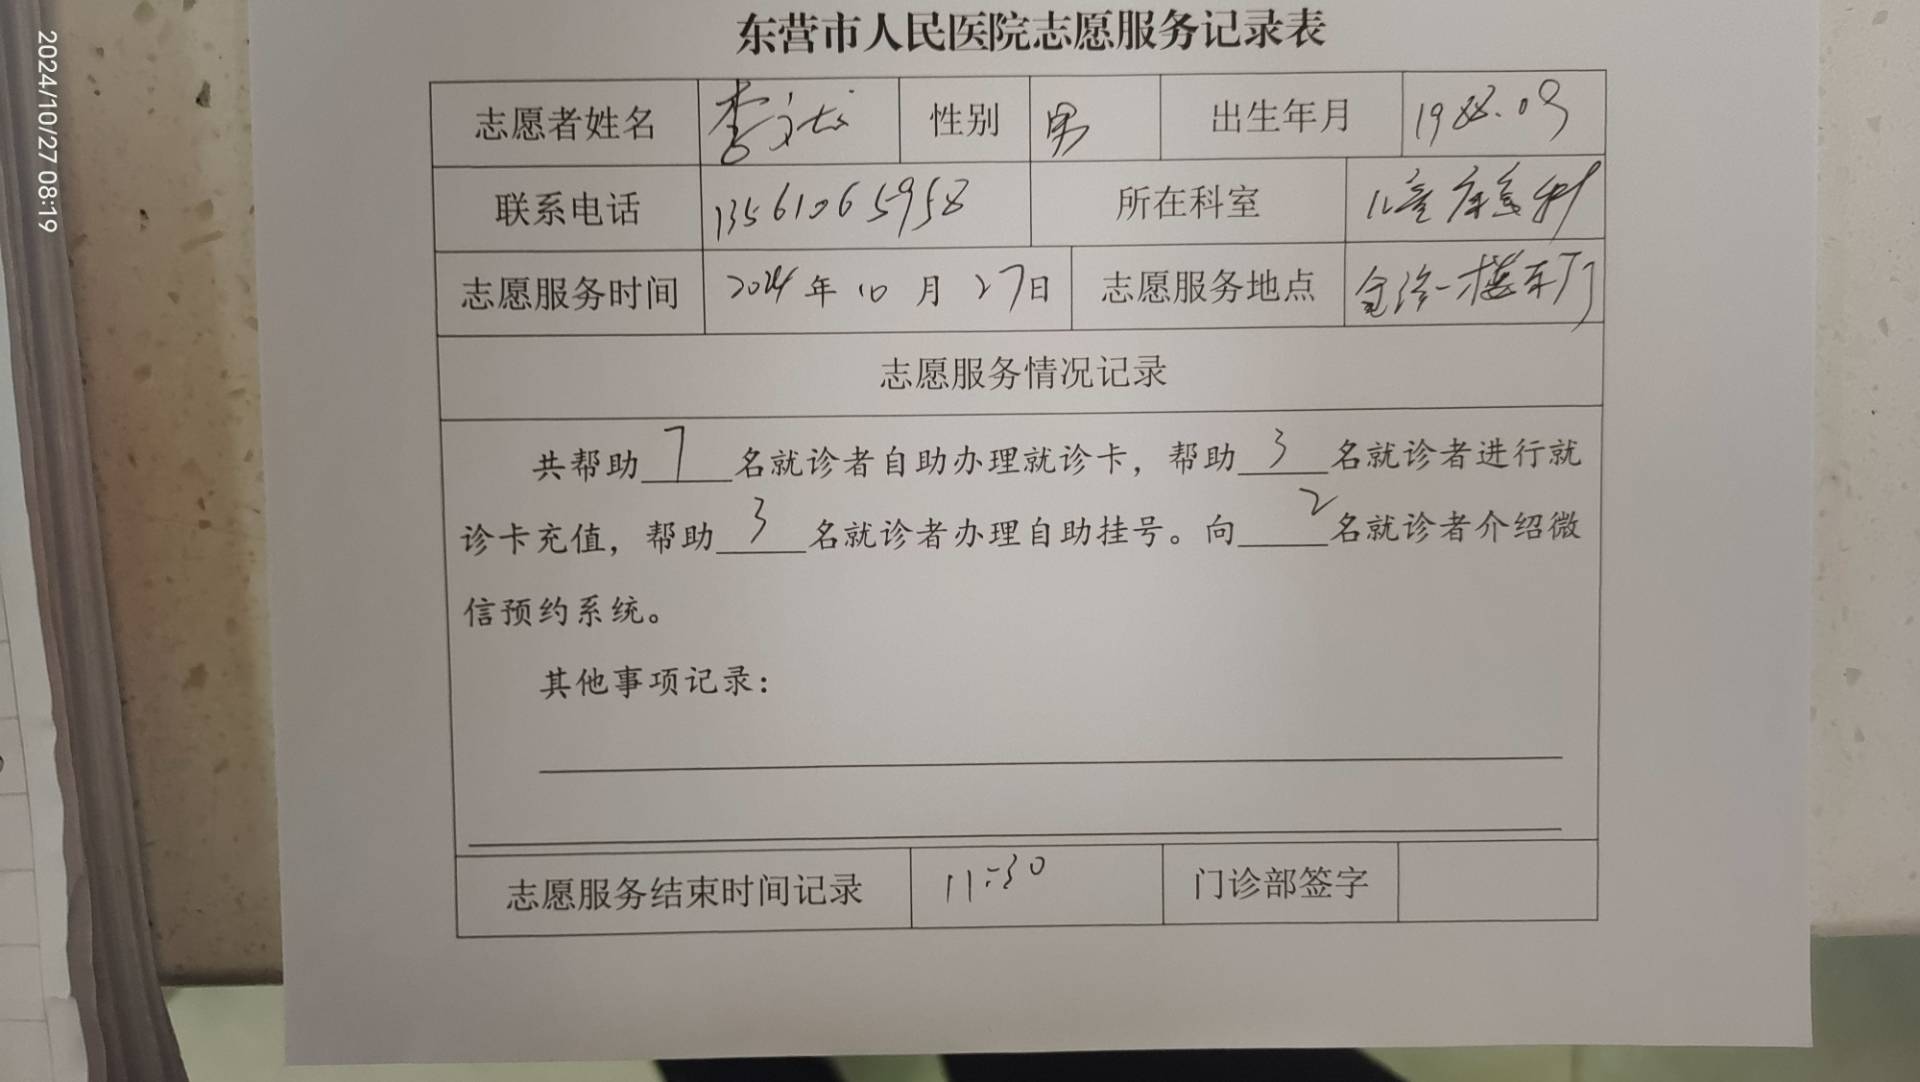 2024/10/27 08:19
东营市人民医院志愿服务记录表
志愿者姓名 李文 性别 男 出生年月 1988.09
联系电话 13561065958 所在科室 儿童康复科
志愿服务时间 2024年10月27日 志愿服务地点 一楼东厅
志愿服务情况记录
共帮助7名就诊者自助办理就诊卡，帮助3名就诊者进行就
诊卡充值，帮助3名就诊者办理自助挂号。向2名就诊者介绍微
信预约系统。
其他事项记录：
志愿服务结束时间记录 11:30 门诊部签字